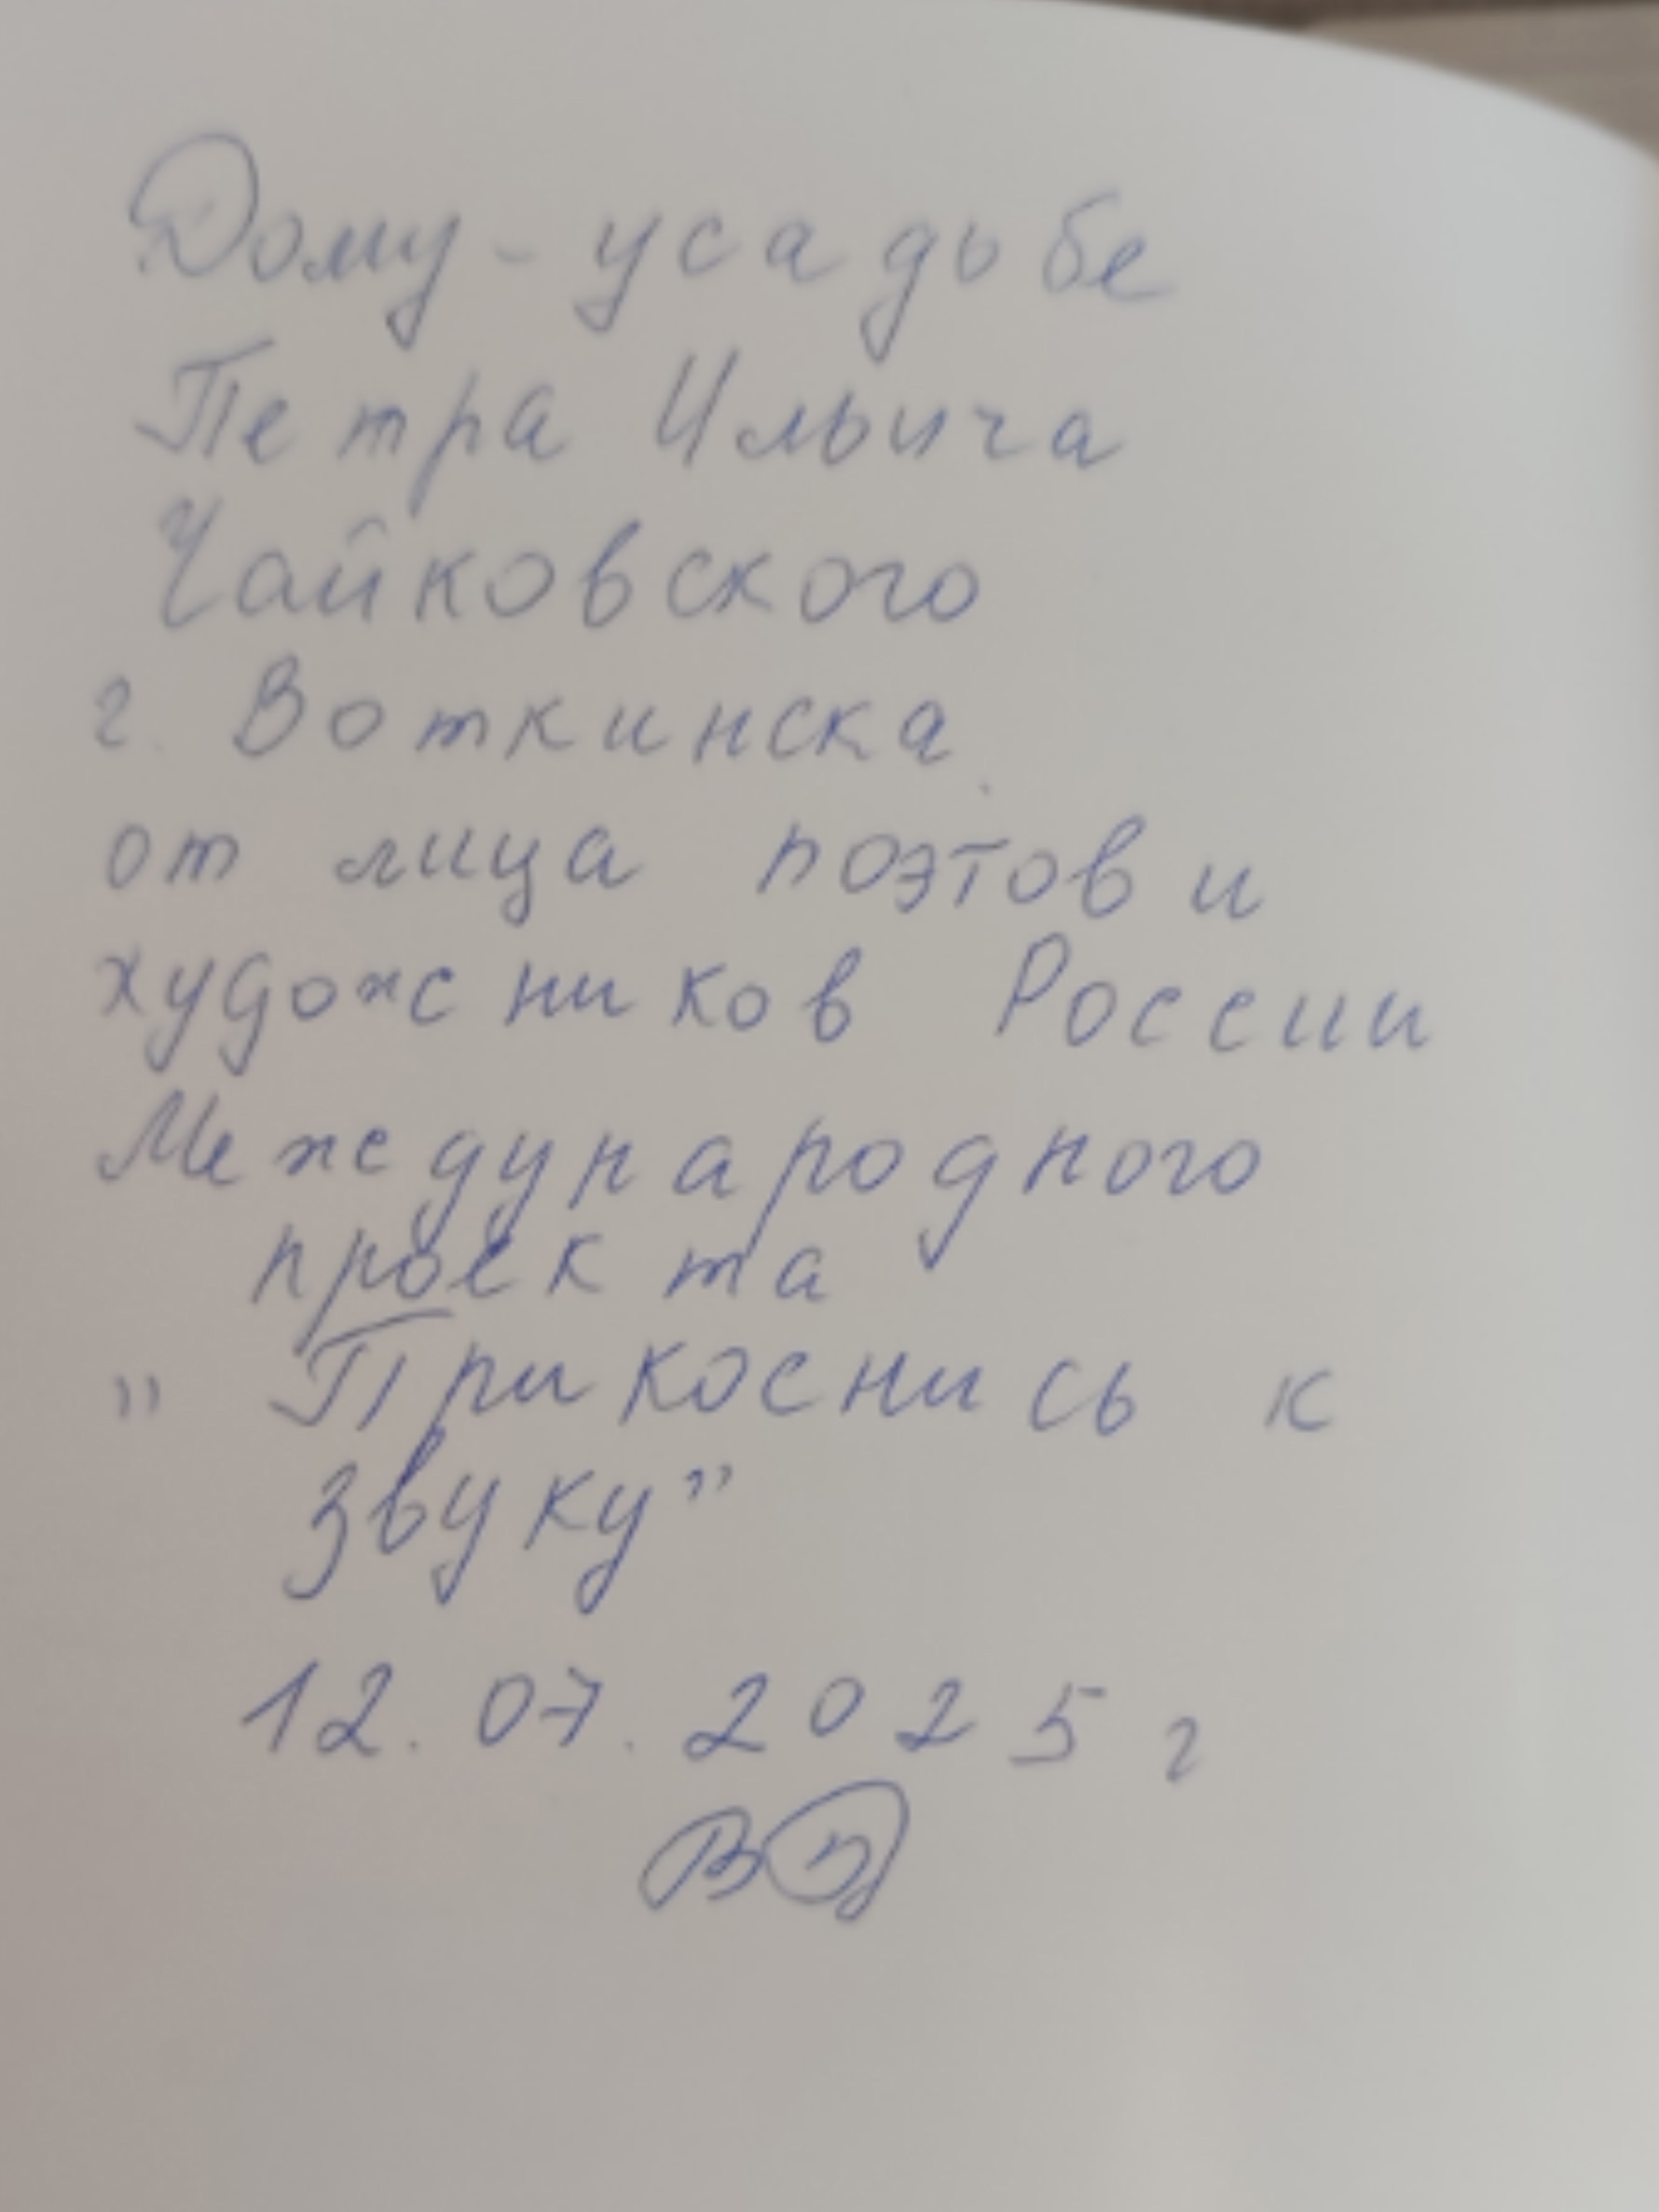 Дому-усадьбе
Петра Ильича
Чайковского
г. Воткинска
от лица поэтов и
художников России
Международного
проекта
" Прикоснись к
звуку"
12.07.2025 г